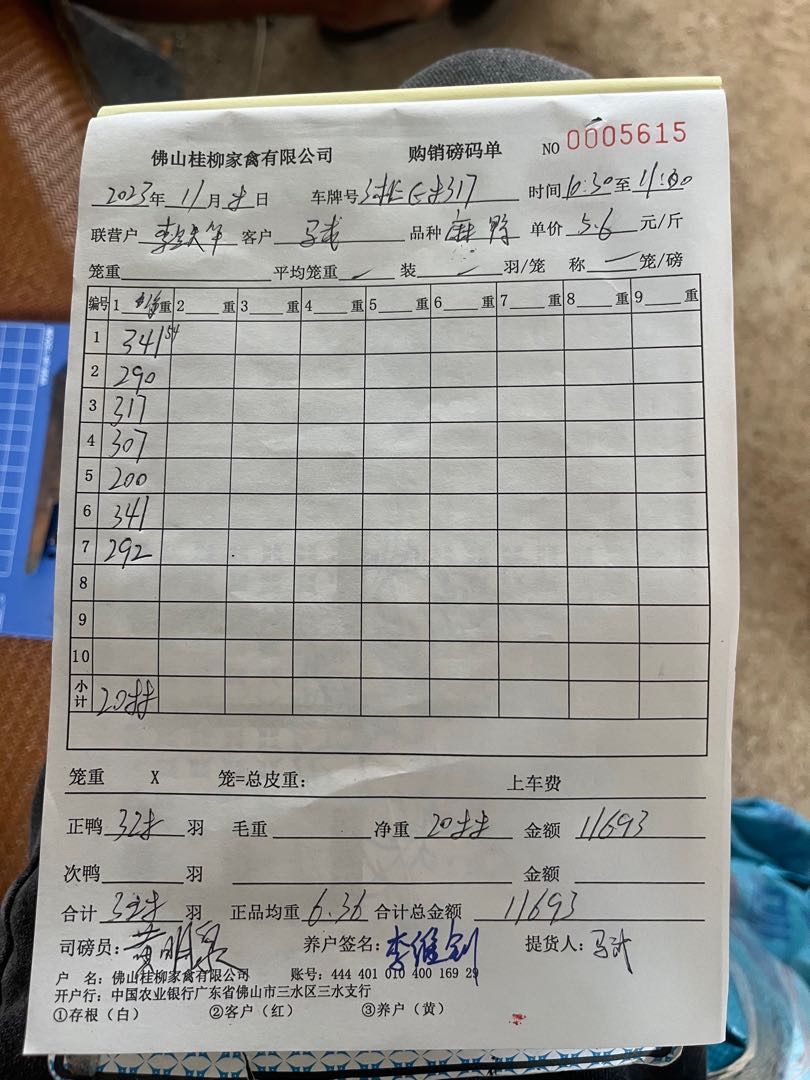 佛山桂柳家禽有限公司 购销磅码单 NO 0005615
2023年 11月 8日 车牌号 时间 10:30至 11:00
联营户 客户 马武 品种 麻鸭 单价 5.6 元/斤
笼重 平均笼重 装 羽/笼 称 笼/磅
编号 1 重 2 重 3 重 4 重 5 重 6 重 7 重 8 重 9 重
1 341
2 290
3 317
4 307
5 200
6 341
7 292
8
9
10
小计 2088
笼重 X 笼=总皮重： 上车费
正鸭 328 羽 毛重 净重 2088 金额 11693
次鸭 羽 金额
合计 328 羽 正品均重 6.36 合计总金额 11693
司磅员： 养户签名： 提货人：马武
户 名：佛山桂柳家禽有限公司 账号：444 401 010 400 169 29
开户行：中国农业银行广东省佛山市三水区三水支行
①存根（白） ②客户（红） ③养户（黄）